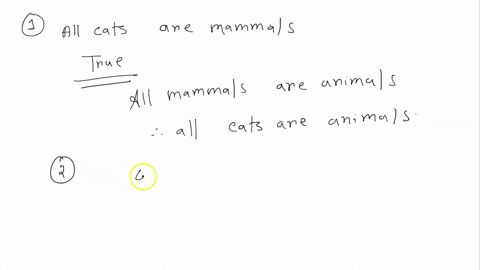 ① All cats are mammals
True
All mammals are animals
∴ all cats are animals.
②